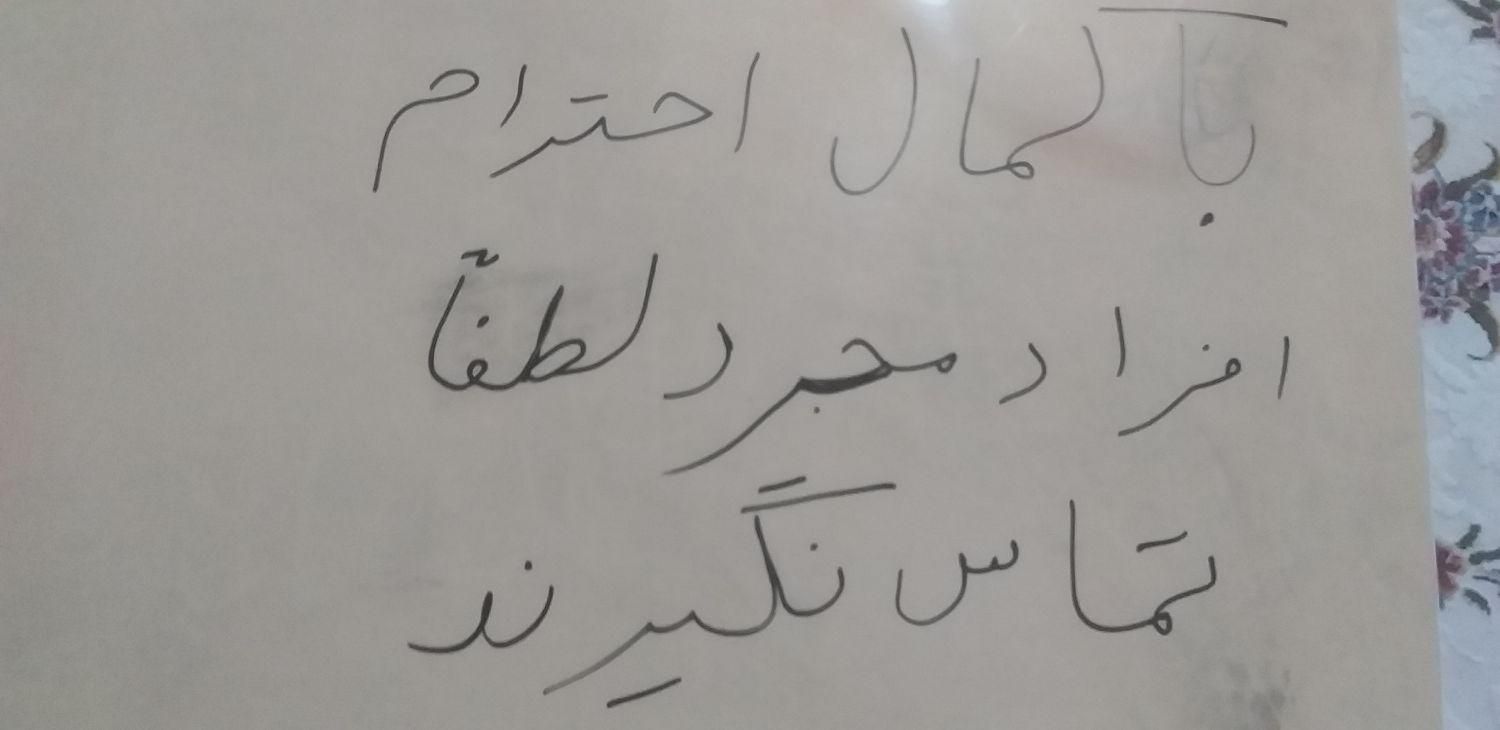 با کمال احترام
افراد مجرد لطفاً
تماس نگیرند